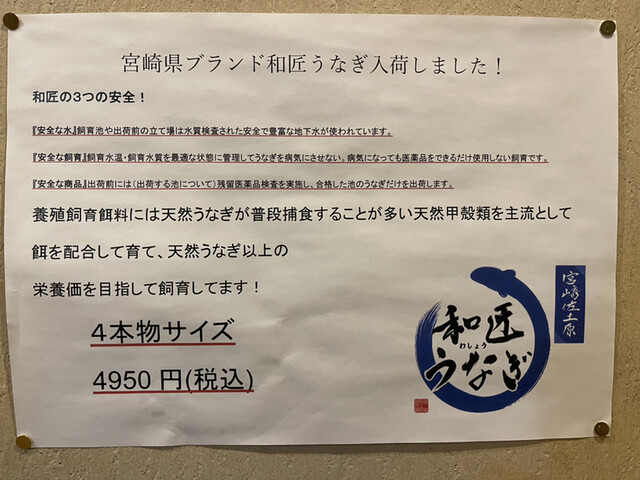 宮崎県ブランド和匠うなぎ入荷しました!
和匠の3つの安全!
『安全な水』飼育池や出荷前の立て場は水質検査された安全で豊富な地下水が使われています。
『安全な飼育』飼育水温・飼育水質を最適な状態に管理してうなぎを病気にさせない。病気になっても医薬品をできるだけ使用しない飼育です。
『安全な商品』出荷前には(出荷する池について)残留医薬品検査を実施し、合格した池のうなぎだけを出荷します。
養殖飼育餌料には天然うなぎが普段捕食することが多い天然甲殻類を主流として
餌を配合して育て、天然うなぎ以上の
栄養価を目指して飼育してます!
4本物サイズ
4950円(税込)
宮崎佐土原
和匠
わしょう
うなぎ